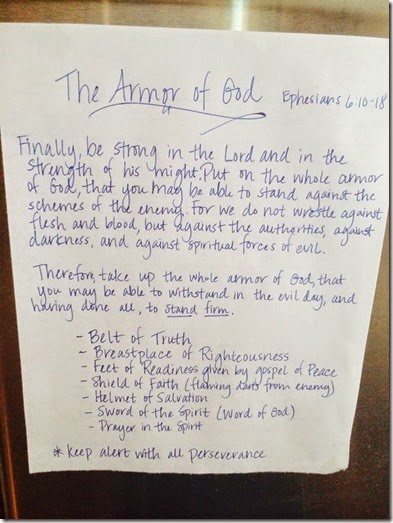 The Armor of God Ephesians 6:10-18
Finally, be strong in the Lord and in the
strength of his might. Put on the whole armor
of God, that you may be able to stand against the
schemes of the enemy. For we do not wrestle against
flesh and blood, but against the authorities, against
darkness, and against spiritual forces of evil.
Therefore, take up the whole armor of God, that
you may be able to withstand in the evil day, and
having done all, to stand firm.
- Belt of Truth
- Breastplace of Righteousness
- Feet of Readiness given by gospel of Peace
- Shield of Faith (flaming darts from enemy)
- Helmet of Salvation
- Sword of the Spirit (Word of God)
- Prayer in the Spirit
* Keep alert with all perseverance